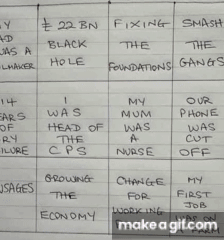 Y
AD
AS A
LMAKER
£22BN
BLACK
HOLE
FIXING
THE
FOUNDATIONS
SMASH
THE
GANGS
14
EARS
OF
RY
ILURE
I
WAS
HEAD OF
THE
CPS
MY
MUM
WAS
A
NURSE
OUR
PHONE
WAS
CUT
OFF
USAGES
GROWING
THE
ECONOMY
CHANGE
FOR
WORKING
MY
FIRST
JOB
WAS ON
make a meme